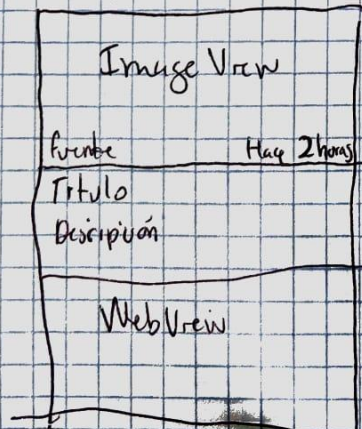 Image View
fuente Hace 2 horas
Titulo
Descripción
WebView